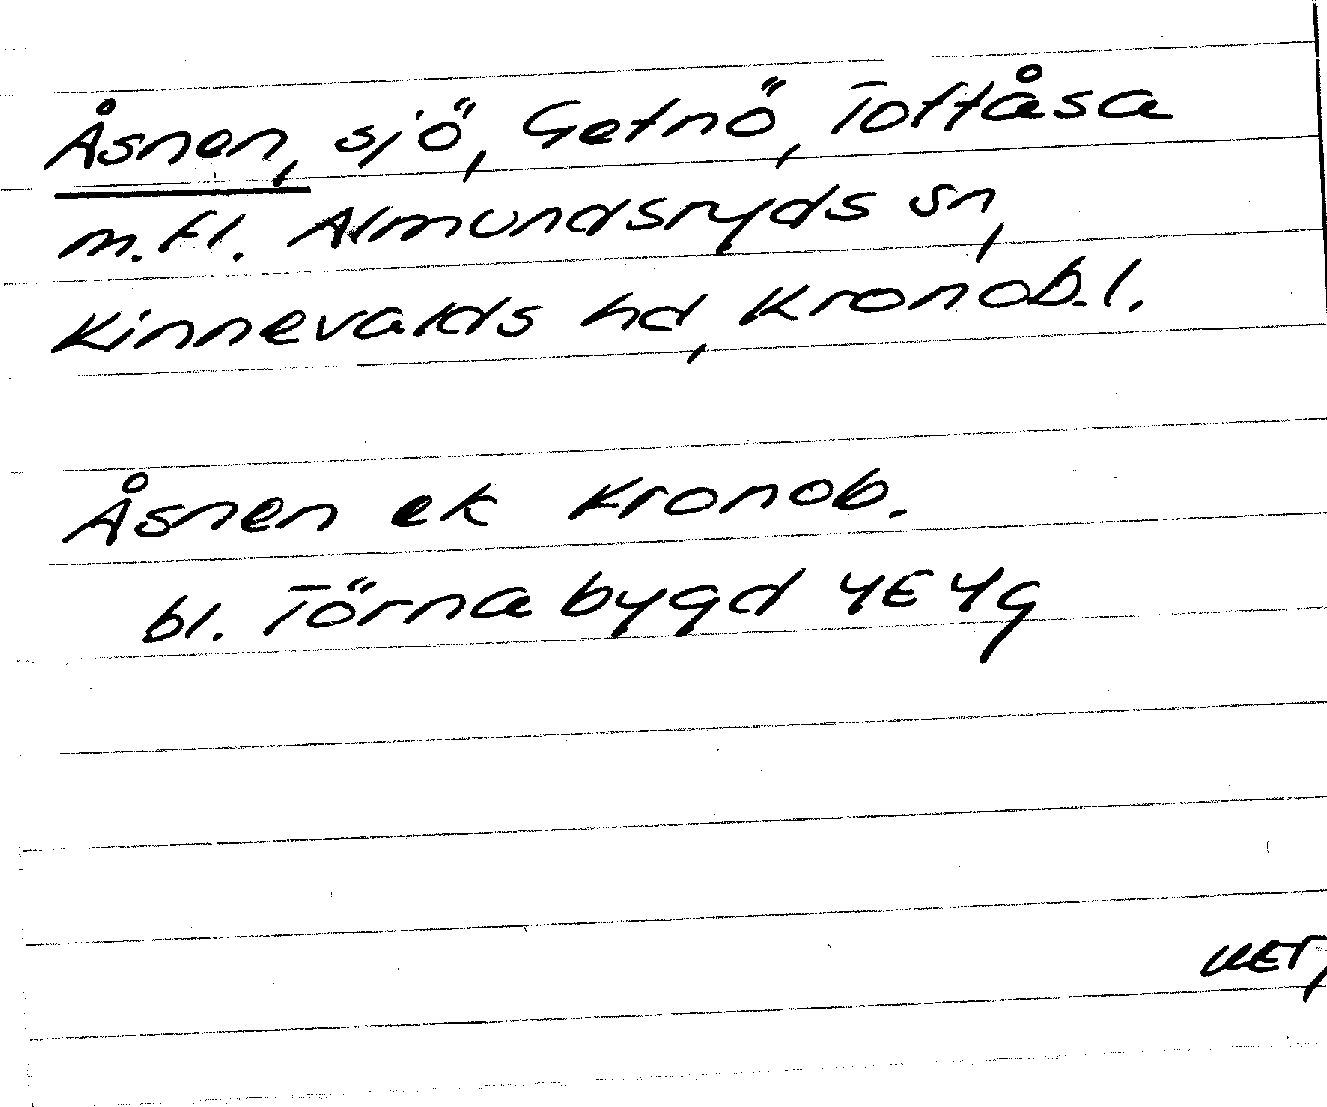 Åsnen, sjö, Getnö, Toftåsa
m.fl. Almundsryds sn,
Kinnevalds hd, Kronob.l.
Åsnen ek Kronob.
bl. Törnabygd 4E4g